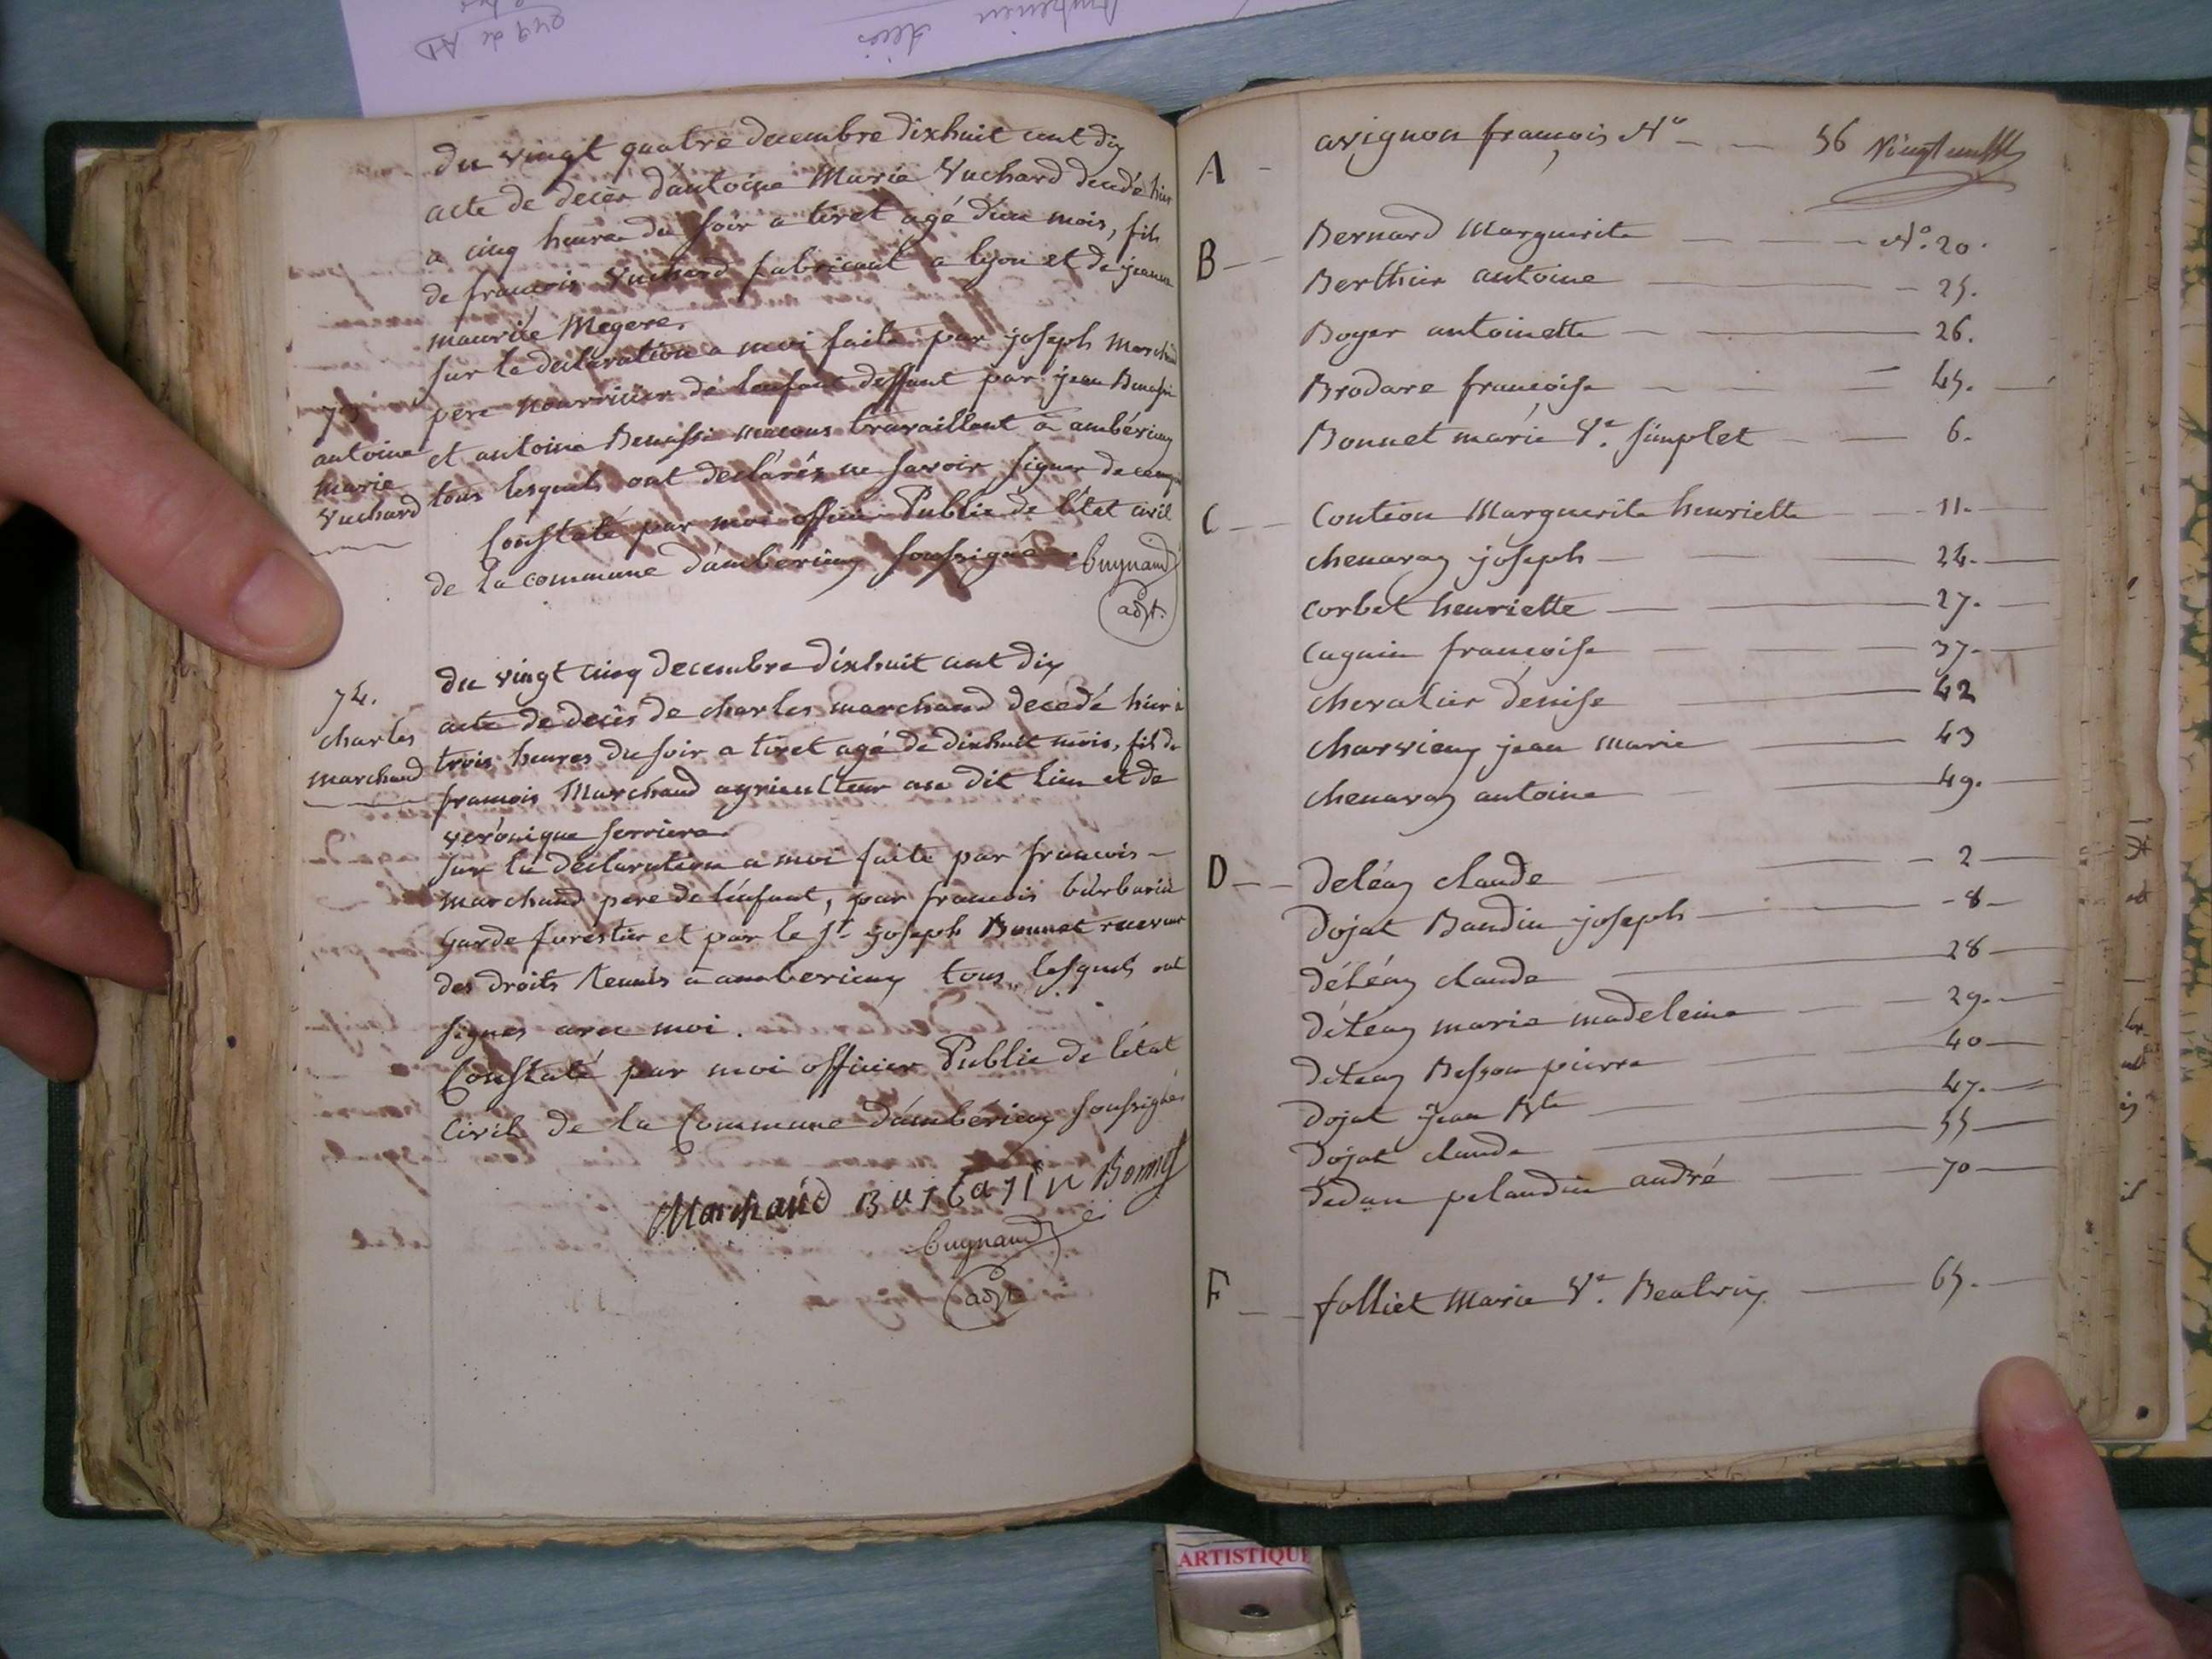 du vingt quatre decembre dixhuit cent dix
acte de decès d'antoine Marie Vuchard decedé hier
a cinq heures du soir a tiret agé d'un mois, fils
de francois Vuchard fabricant a lyon et de jeanne
maurice Megere.
sur la declaration a moi faite par joseph Marchand
73
pere nourricier de lenfant deffunt par jean Benassi
antoine
marie
Vuchard
et antoine Benassi macons travaillant à ambérieux
tous lesquels ont déclarés ne savoir signer de ce
Constaté par moi officier Public de l'état civil
de la commune d'ambérieux soussigné. Cugnaud
adjt.
du vingt cinq decembre dixhuit cent dix
74.
charles
marchand
acte de decès de charles marchand decedé hier à
trois heures du soir a tiret agé de dixhuit mois, fils de
francois Marchand agriculteur au dit lieu et de
veronique serriere
sur la declaration a moi faite par francois
marchand pere de l'enfant, par francois burbarin
garde forestier et par le Sr. joseph Bonnet receveur
des droits Reunis a amberieux tous lesquels ont
signes avec moi.
Constaté par moi officier Public de l'état
Civil de la Commune d'ambérieux soussignés
Marchand Burbarin Bonnet
Cugnaud
adjt
A - avignon francois No - - 56
B - - Bernard Marguerite - - - No. 20.
Berthier antoine - 25.
Boyer antoinette - 26.
Brodare francoise - 45.
Bonnet marie Ve. simplet - 6.
C - - Conteon Marguerite henriette - 11.
chenavaz joseph - 24.
corbet henriette - 27.
cagnin francoise - 37.
chevalier denise - 42
charvieux jean marie - 43
chenavaz antoine - 49.
D - - deléaz claude - 2
dojat Baudin joseph - 8
déléaz claude - 28
déléaz marie madeleine - 29.
déléaz Besson pierre - 40
dojat jean Bte - 47.
dojat claude - 55
dedun pelaudin andré - 70
F - - folliet Marie Ve. - 65.
ARTISTIQUE